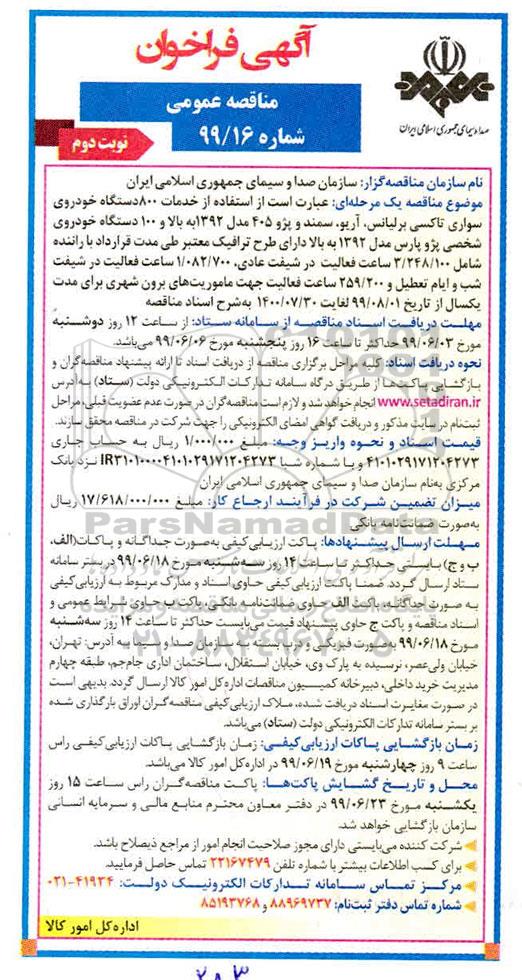 آگهی فراخوان
مناقصه عمومی
شماره ۹۹/۱۶
نوبت دوم
صدا و سیمای جمهوری اسلامی ایران
نام سازمان مناقصه‌گزار: سازمان صدا و سیمای جمهوری اسلامی ایران
موضوع مناقصه یک مرحله‌ای: عبارت است از استفاده از خدمات ۸۰۰ دستگاه خودروی
سواری تاکسی برلیانس، آریو، سمند و پژو ۴۰۵ مدل ۱۳۹۲ به بالا و ۱۰۰ دستگاه خودروی
شخصی پژو پارس مدل ۱۳۹۲ به بالا دارای طرح ترافیک معتبر طی مدت قرارداد با راننده
شامل ۳/۲۴۸/۱۰۰ ساعت فعالیت در شیفت عادی، ۱/۰۸۲/۷۰۰ ساعت فعالیت در شیفت
شب و ایام تعطیل و ۲۵۹/۲۰۰ ساعت فعالیت جهت ماموریت‌های برون شهری برای مدت
یکسال از تاریخ ۹۹/۰۸/۰۱ لغایت ۱۴۰۰/۰۷/۳۰ به‌شرح اسناد مناقصه
مهلت دریافت اسناد مناقصه از سامانه ستاد: از ساعت ۱۲ روز دوشنبه
مورخ ۹۹/۰۶/۰۳ حداکثر تا ساعت ۱۶ روز پنجشنبه مورخ ۹۹/۰۶/۰۶ می‌باشد.
نحوه دریافت اسناد: کلیه مراحل برگزاری مناقصه از دریافت اسناد تا ارائه پیشنهاد مناقصه‌گران و
بازگشایی پاکت‌ها از طریق درگاه سامانه تدارکات الکترونیکی دولت (ستاد) به آدرس
www.setadiran.ir انجام خواهد شد و لازم است مناقصه‌گران در صورت عدم عضویت قبلی، مراحل
ثبت‌نام در سایت مذکور و دریافت گواهی امضای الکترونیکی را جهت شرکت در مناقصه محقق سازند.
قیمت اسناد و نحوه واریز وجه: مبلغ ۱/۰۰۰/۰۰۰ ریال به حساب جاری
۴۱۰۱۰۲۹۱۷۱۲۰۴۲۷۳ و با شماره شبا IR۳۱۰۱۰۰۰۰۴۱۰۱۰۲۹۱۷۱۲۰۴۲۷۳ نزد بانک
مرکزی به‌نام سازمان صدا و سیمای جمهوری اسلامی ایران
میزان تضمین شرکت در فرآیند ارجاع کار: مبلغ ۱۷/۶۱۸/۰۰۰/۰۰۰ ریال
به‌صورت ضمانت‌نامه بانکی
مهلت ارسال پیشنهادها: پاکت ارزیابی کیفی به‌صورت جداگانه و پاکات (الف،
ب و ج) بایستی حداکثر تا ساعت ۱۴ روز سه‌شنبه مورخ ۹۹/۰۶/۱۸ در بستر سامانه
ستاد ارسال گردد. ضمنا پاکت ارزیابی کیفی حاوی اسناد و مدارک مربوط به ارزیابی کیفی
به صورت جداگانه، پاکت الف حاوی ضمانت‌نامه بانکی، پاکت ب حاوی شرایط عمومی و
اسناد مناقصه و پاکت ج حاوی پیشنهاد قیمت می‌بایست حداکثر تا ساعت ۱۴ روز سه‌شنبه
مورخ ۹۹/۰۶/۱۸ به‌صورت فیزیکی و درب بسته به سازمان صدا و سیما به آدرس: تهران،
خیابان ولی‌عصر، نرسیده به پارک وی، خیابان استقلال، ساختمان اداری جام‌جم، طبقه چهارم
مدیریت خرید داخلی، دبیرخانه کمیسیون مناقصات اداره کل امور کالا ارسال گردد. بدیهی است
در صورت مغایرت اسناد دریافت شده، ملاک ارزیابی کیفی مناقصه‌گران اوراق بارگذاری شده
بر بستر سامانه تدارکات الکترونیکی دولت (ستاد) می‌باشد.
زمان بازگشایی پاکات ارزیابی کیفی: زمان بازگشایی پاکات ارزیابی کیفی راس
ساعت ۹ روز چهارشنبه مورخ ۹۹/۰۶/۱۹ در اداره کل امور کالا می‌باشد.
محل و تاریخ گشایش پاکت‌ها: پاکت مناقصه‌گران راس ساعت ۱۵ روز
یکشنبه مورخ ۹۹/۰۶/۲۳ در دفتر معاون محترم منابع مالی و سرمایه انسانی
سازمان بازگشایی خواهد شد.
شرکت کننده می‌بایستی دارای مجوز صلاحیت انجام امور از مراجع ذیصلاح باشد.
برای کسب اطلاعات بیشتر با شماره تلفن ۲۲۱۶۷۴۷۹ تماس حاصل فرمایید.
مرکز تماس سامانه تدارکات الکترونیک دولت: ۴۱۹۳۴-۰۲۱
شماره تماس دفتر ثبت‌نام: ۸۸۹۶۹۷۳۷ و ۸۵۱۹۳۷۶۸
اداره کل امور کالا
ParsNamadData
۰۲۱-۸۸۳۴۹۶۷۰-۵
۲۸۳